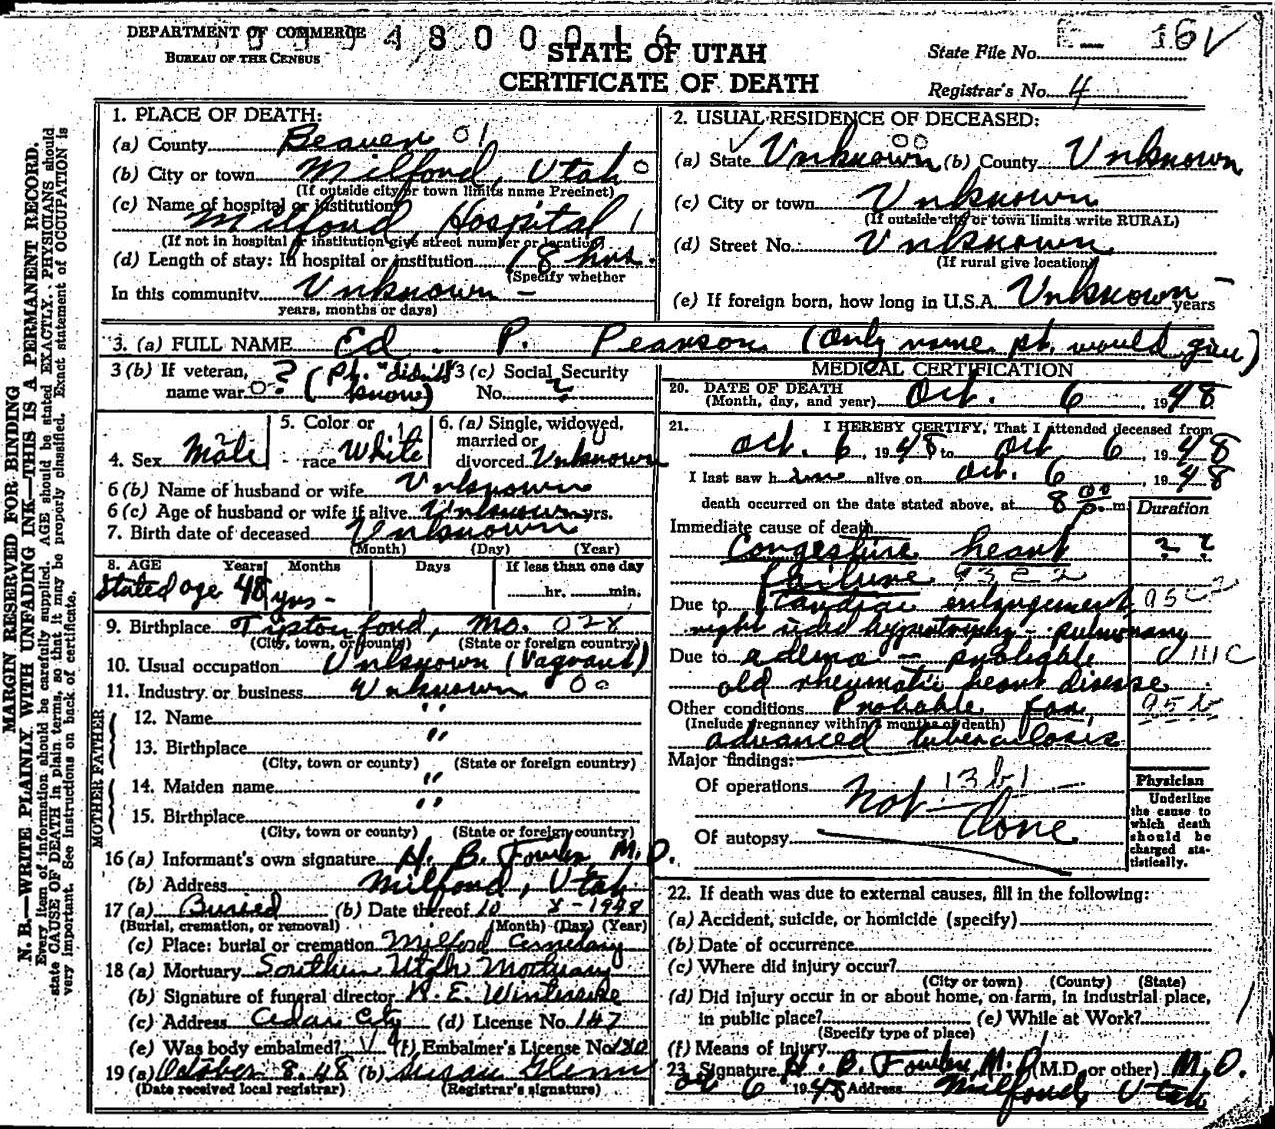 DEPARTMENT OF COMMERCE
BUREAU OF THE CENSUS
4 8 0 0 0 1 6
STATE OF UTAH
CERTIFICATE OF DEATH
State File No. 16
Registrar's No. 4
MARGIN RESERVED FOR BINDING
N. B.—WRITE PLAINLY, WITH UNFADING INK—THIS IS A PERMANENT RECORD.
Every item of information should be carefully supplied. AGE should be stated EXACTLY. PHYSICIANS should
state CAUSE OF DEATH in plain terms, so that it may be properly classified. Exact statement of OCCUPATION is
very important. See instructions on back of certificate.
1. PLACE OF DEATH:
(a) County Beaver 01
(b) City or town Milford, Utah 0
(If outside city or town limits name Precinct)
(c) Name of hospital or institution
Milford Hospital 1
(If not in hospital or institution give street number or location)
(d) Length of stay: In hospital or institution 18 hrs.
(Specify whether
In this community Unknown –
years, months or days)
2. USUAL RESIDENCE OF DECEASED:
00
(a) State Unknown (b) County Unknown
(c) City or town Unknown
(If outside city or town limits write RURAL)
(d) Street No. Unknown
(If rural give location)
(e) If foreign born, how long in U.S.A. Unknown years
3. (a) FULL NAME Ed. P. Pearson (Only name pt. would give)
3 (b) If veteran, name war ? (Pt. "didn't know)
3 (c) Social Security No. ?
4. Sex Male
5. Color or race White
6. (a) Single, widowed, married or divorced Unknown
6 (b) Name of husband or wife Unknown
6 (c) Age of husband or wife if alive Unknown yrs.
7. Birth date of deceased Unknown
(Month) (Day) (Year)
8. AGE Years Months Days If less than one day
Stated age 48 yrs – hr. min.
9. Birthplace Tiptonford, Mo. 028
(City, town, or county) (State or foreign country)
10. Usual occupation Unknown (Vagrant)
11. Industry or business Unknown 00
FATHER
12. Name "
13. Birthplace "
(City, town or county) (State or foreign country)
MOTHER
14. Maiden name "
15. Birthplace "
(City, town or county) (State or foreign country)
16 (a) Informant's own signature H. B. Fowler, M.D.
(b) Address Milford, Utah
17 (a) Buried (b) Date thereof 10 8-1948
(Burial, cremation, or removal) (Month) (Day) (Year)
(c) Place: burial or cremation Milford Cemetary
18 (a) Mortuary Southern Utah Mortuary
(b) Signature of funeral director
(c) Address Cedar City (d) License No. 147
(e) Was body embalmed? (f) Embalmer's License No. 130
19 (a) October 8, 48 (b) Susan Glenn
(Date received local registrar) (Registrar's signature)
MEDICAL CERTIFICATION
20. DATE OF DEATH
(Month, day, and year) Oct. 6, 1948
21. I HEREBY CERTIFY, That I attended deceased from
Oct. 6, 1948 to Oct 6, 1948
I last saw him alive on Oct. 6, 1948
death occurred on the date stated above, at 8 00 p. m.
Duration
Immediate cause of death
Congestive heart ? ?
failure
Due to Cardiac enlargement
right sided hypertrophy - pulmonary
Due to edema – probable 111C
old rheumatic heart disease
Other conditions Probable far 95b
(Include Pregnancy within 3 months of death)
advanced tuberculosis
Major findings:
Of operations 13b1
Not done
Of autopsy
Physician
Underline
the cause to
which death
should be
charged sta-
tistically.
22. If death was due to external causes, fill in the following:
(a) Accident, suicide, or homicide (specify)
(b) Date of occurrence
(c) Where did injury occur?
(City or town) (County) (State)
(d) Did injury occur in or about home, on farm, in industrial place,
in public place? (e) While at Work?
(Specify type of place)
(f) Means of injury
23. Signature H. B. Fowler, M.D. (M.D. or other) M.D.
Oct 6 1948 Address Milford, Utah